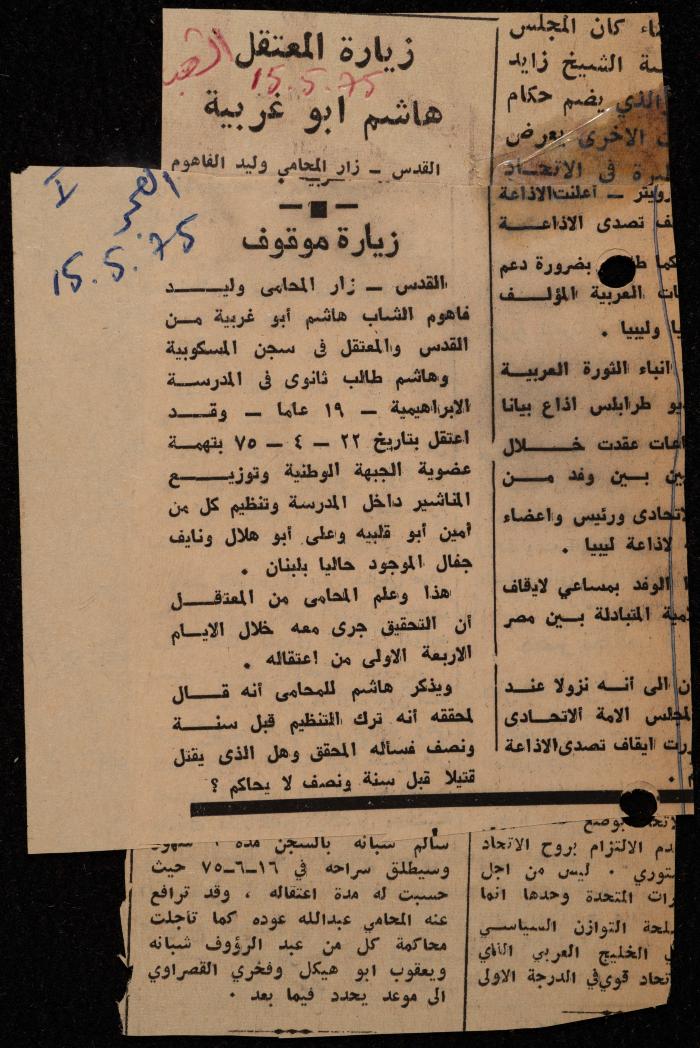 زيارة المعتقل
الشعب
15.5.75
هاشم ابو غربية
القدس ـ زار المحامي وليد الفاهوم
الفجر
15.5.75
زيارة موقوف
القدس ـ زار المحامى وليـــد
فاهوم الشاب هاشم أبو غربية مـن
القدس والمعتقل فى سجن المسكوبية
وهاشم طالب ثانوى فى المدرسـة
الابراهيمية ـ ١٩ عاما ـ وقـد
اعتقل بتاريخ ٢٢ ـ ٤ ـ ٧٥ بتهمة
عضوية الجبهة الوطنية وتوزيــع
المناشير داخل المدرسة وتنظيم كل من
أمين أبو قلبيه وعلى أبو هلال ونايف
جفال الموجود حاليا بلبنان .
هذا وعلم المحامى من المعتقـل
أن التحقيق جرى معه خلال الايـام
الاربعة الاولى من اعتقاله .
ويذكر هاشم للمحامى أنه قـال
لمحققه أنه ترك التنظيم قبل سنـة
ونصف فسأله المحقق وهل الذى يقتل
قتيلا قبل سنة ونصف لا يحاكم ؟
شبانه بالسجن مدة
وسيطلق سراحه في ١٦-٦-٧٥ حيث
حسبت له مدة اعتقاله ، وقد ترافع
عنه المحامي عبدالله عوده كما تأجلت
محاكمة كل من عبد الرؤوف شبانه
ويعقوب ابو هيكل وفخري القصراوي
الى موعد يحدد فيما بعد .
كان المجلس
الشيخ زايد
والذي يضم حكام
الاخرى يعرض
فى الاتحاد
رويتر ـ أعلنت الاذاعة
تصدى الاذاعـة
كما بضرورة دعم
العربية المؤلـف
وليبيا .
انباء الثورة العربيـة
طرابلس اذاع بيانا
عقدت خــلال
بـين وفد مــن
ورئيس واعضاء
لاذاعة ليبيا .
الوفد بمساعي لايقاف
المتبادلة بـين مصر
الى أنـه نزولا عنـد
مجلس الامة الاتحادى
ايقاف تصدى الاذاعة
بوضع
الالتزام بروح الاتحاد
ليس من اجل
المتحدة وحدها انما
التوازن السياسـي
الخليج العربي الذي
قوي في الدرجة الاولى